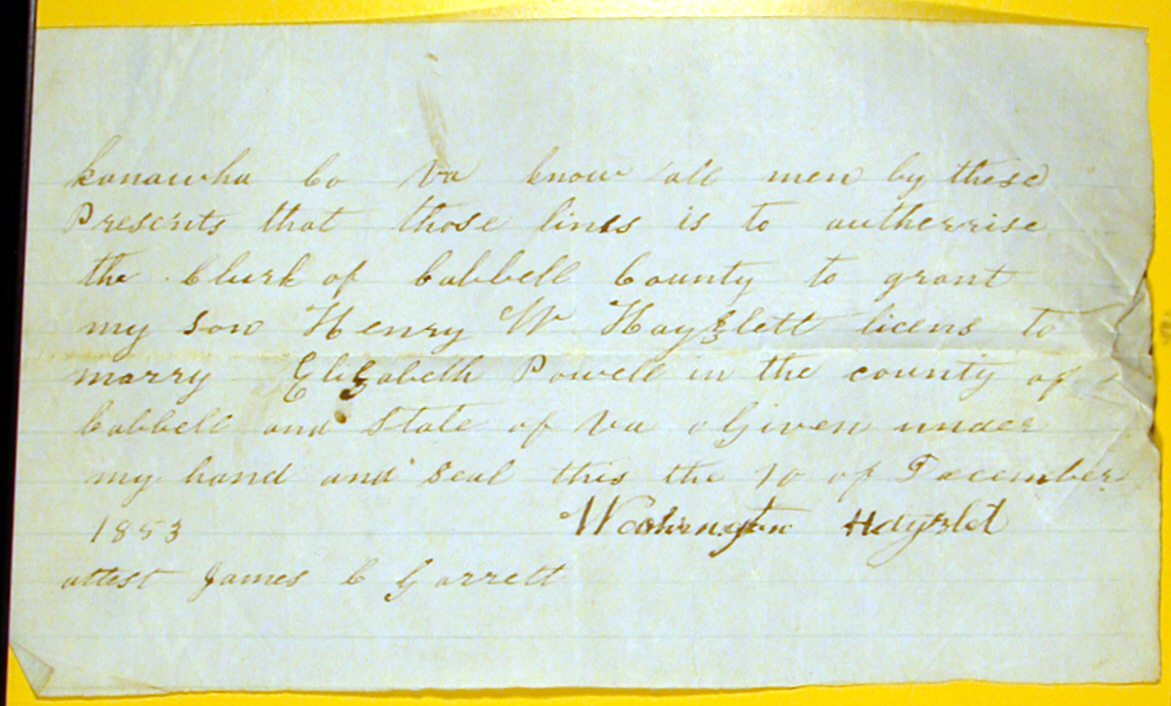 kanawha Co Va know all men by these
Presents that those lines is to autherrise
the Clurk of Cabbell County to grant
my son Henry W Hayzlett licens to
marry Elizabeth Powell in the county of
Cabbell and State of Va Given under
my hand and seal this the 10 of December
1853 Washington Hayslet
attest James C Garrett